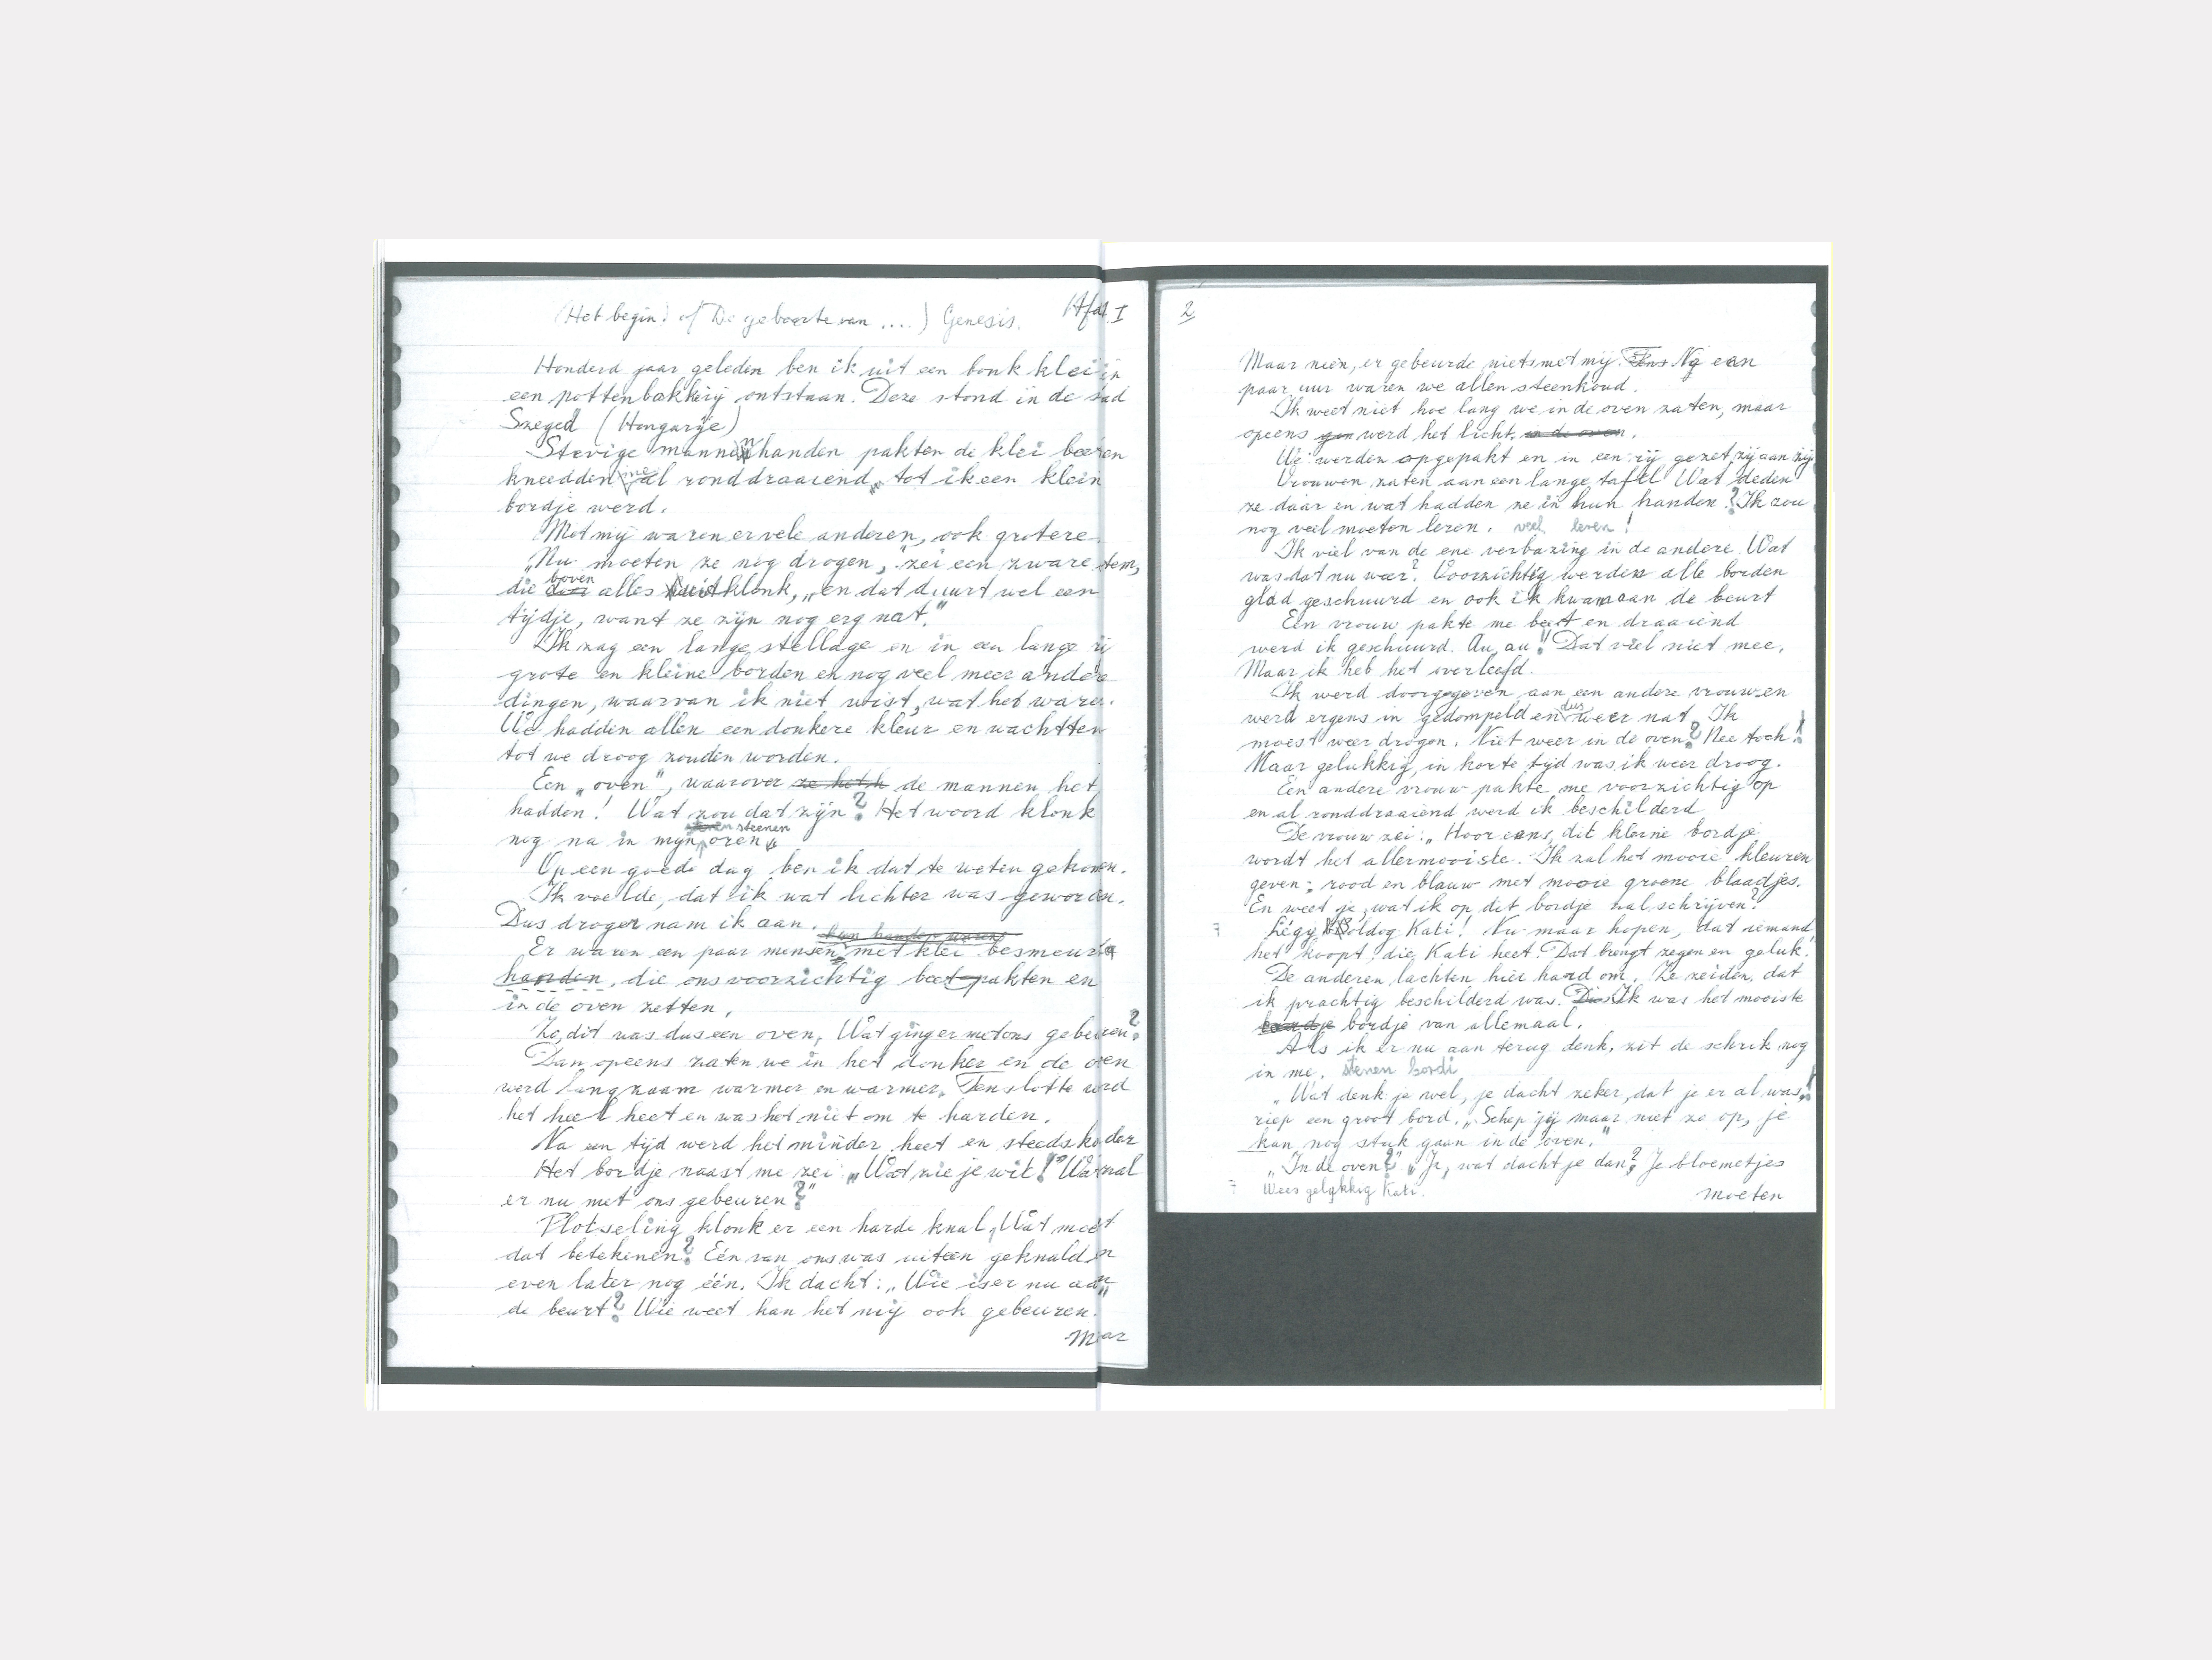 (Het begin? of De geboorte van ....) Genesis. Afd. I
Honderd jaar geleden ben ik uit een bonk klei in
een pottenbakkerij ontstaan. Deze stond in de stad
Szeged (Hongarije)
Stevige mannenhanden pakten de klei beet en
kneedden me al ronddraaiend, tot ik een klein
bordje werd.
Met mij waren er vele anderen, ook grotere.
„Nu moeten ze nog drogen,” zei een zware stem,
die boven alles uitklonk, „en dat duurt wel een
tijdje, want ze zijn nog erg nat.”
Ik zag een lange stellage en in een lange rij
grote en kleine borden en nog veel meer andere
dingen, waarvan ik niet wist, wat het waren.
We hadden allen een donkere kleur en wachtten
tot we droog zouden worden.
Een „oven”, waarover ze het h de mannen het
hadden! Wat zou dat zijn? Het woord klonk
nog na in mijn steenen oren.
Op een goede dag ben ik dat te weten gekomen.
Ik voelde, dat ik wat lichter was geworden.
Dus droger nam ik aan.
hun handen waren
Er waren een paar mensen met klei besmeurde
handen, die ons voorzichtig beet pakten en
in de oven zetten.
Zo, dit was dus een oven. Wat ging er met ons gebeuren?
Dan opeens zaten we in het donker en de oven
werd langzaam warmer en warmer. Ten slotte werd
het heel heet en was het niet om te harden.
Na een tijd werd het minder heet en steeds kouder
Het bordje naast me zei: „Wat zie je wit!” Wat zal
er nu met ons gebeuren?”
Plotseling klonk er een harde knal. Wat moest
dat betekenen? Eén van ons was uiteen geknald en
even later nog één. Ik dacht: „Wie is er nu aan
de beurt? Wie weet kan het mij ook gebeuren.”
Maar
2
Maar neen, er gebeurde niets met mij. Na een
paar uur waren we allen steenkoud.
Ik weet niet hoe lang we in de oven zaten, maar
opeens werd het licht in de oven.
We werden opgepakt en in een rij gezet zij aan zij
Vrouwen zaten aan een lange tafel. Wat deden
ze daar en wat hadden ze in hun handen? Ik zou
nog veel moeten leren. veel leven!
Ik viel van de ene verbazing in de andere. Wat
was dat nu weer? Voorzichtig werden alle borden
glad geschuurd en ook ik kwam aan de beurt
Een vrouw pakte me beet en draaiend
werd ik geschuurd. Au, au!! Dat viel niet mee.
Maar ik heb het overleefd.
Ik werd doorgegeven aan een andere vrouw en
werd ergens in gedompeld en dus weer nat. Ik
moest weer drogen. Niet weer in de oven? Nee toch!
Maar gelukkig, in korte tijd was ik weer droog.
Een andere vrouw pakte me voorzichtig op
en al ronddraaiend werd ik beschilderd
De vrouw zei: „Hoor eens, dit kleine bordje
wordt het allermooiste. Ik zal het mooie kleuren
geven: rood en blauw met mooie groene blaadjes.
En weet je, wat ik op dit bordje zal schrijven?
Légy Boldog Kati! Nu maar hopen, dat iemand
het koopt, die Kati heet. Dat brengt zegen en geluk.
De anderen lachten hier hard om. Ze zeiden, dat
ik prachtig beschilderd was. Ik was het mooiste
bordje bordje van allemaal.
Als ik er nu aan terug denk, zit de schrik nog
in me. stenen bordj
„Wat denk je wel, je dacht zeker, dat je er al was!”
riep een groot bord. „Schep jij maar niet zo op, je
kan nog stuk gaan in de oven.”
„In de oven?” „Ja, wat dacht je dan? Je bloemetjes
Wees gelukkig Kati.
moeten